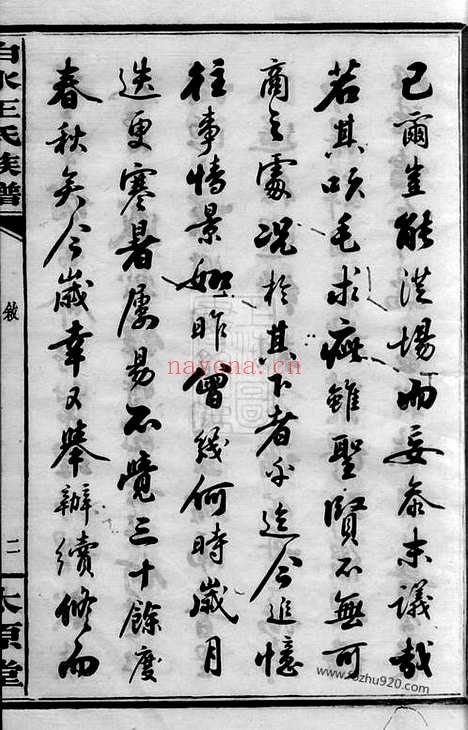 已爾豈能涉場而妄參末議哉
若其吹毛求疵雖聖賢不無可
商之處況於其下者乎迄今追憶
往事情景如昨曾幾何時歲月
迭更寒暑屢易不覺三十餘度
春秋矣今歲幸又舉辦續修而
白水王氏族譜
敘
二
太原堂
nayona.cn
www.fozhu920.com